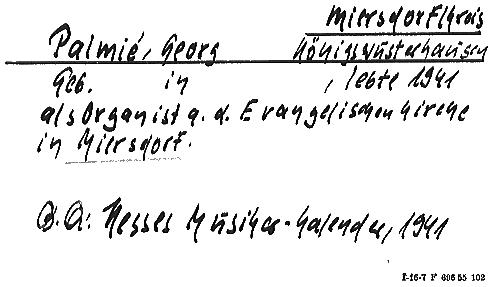 Miersdorf/Kreis
Palmié, Georg Königswusterhausen
Geb. in , lebte 1941
als Organist a. d. Evangelischen Kirche
in Miersdorf.
B.A: Hesses Musiker-Kalender, 1941
I-16-7 F 696 55 102